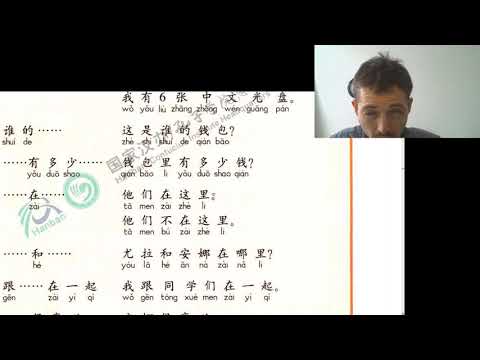 我有6张中文光盘。
wǒ yǒu liù zhāng zhōng wén guāng pán
谁的…… 这是谁的钱包?
shuí de zhè shì shuí de qián bāo
……有多少…… 钱包里有多少钱?
yǒu duō shao qián bāo li yǒu duō shao qián
……在…… 他们在这里。
zài tā men zài zhè lǐ
他们不在这里。
tā men bú zài zhè lǐ
……和…… 尤拉和安娜在哪里?
hé yóu lā hé ān nà zài nǎ lǐ
跟……在一起 我跟同学们在一起。
gēn zài yì qǐ wǒ gēn tóng xué men zài yì qǐ
国家汉办
Hanban
Confucius Institute Headquarters